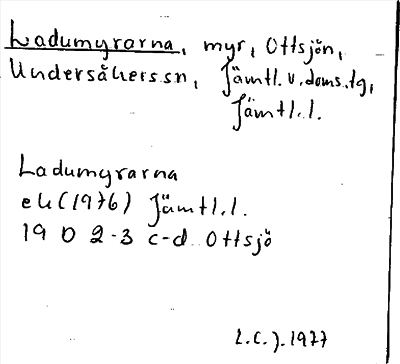 Ladumyrarna, myr, Ottsjön,
Undersåkers sn, Jämtl. v. doms. tg,
Jämtl. l.
Ladumyrarna
ek (1976) Jämtl. l.
19 D 2-3 c-d Ottsjö
L.C.J. 1977